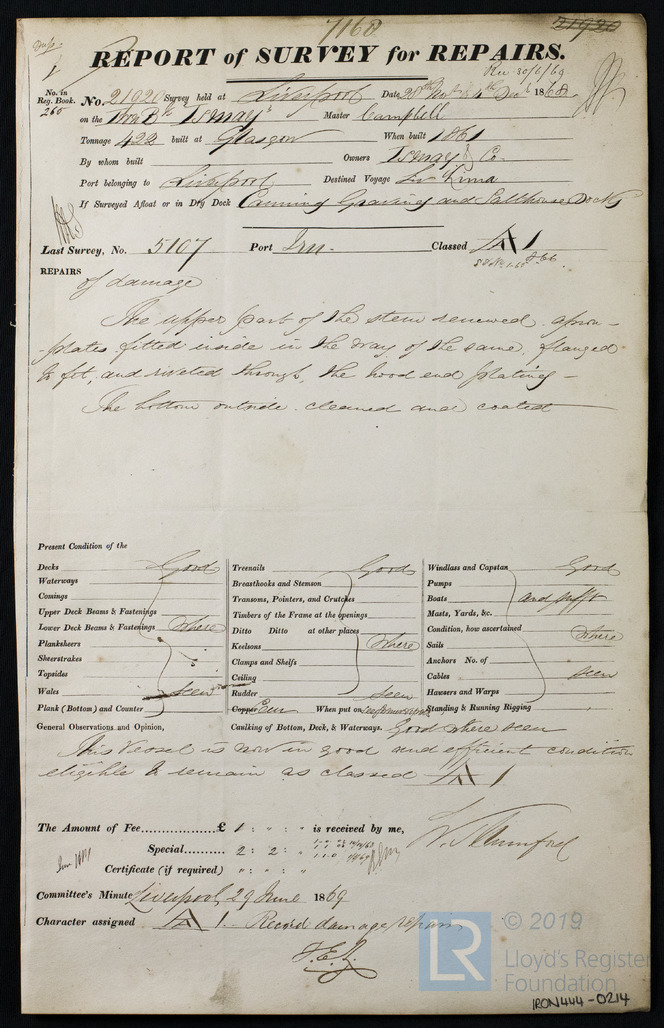 7168
21920
REPORT of SURVEY for REPAIRS.
Rec 30/6/69
No. in Reg. Book. 260
No. 21920 Survey held at Liverpool Date 1868
on the Iron Bk Ismay's Master Campbell
Tonnage 422 built at Glasgow When built 1861
By whom built Owners Ismay & Co.
Port belonging to Liverpool Destined Voyage Lima
If Surveyed Afloat or in Dry Dock Canning Graving and Salthouse Docks
Last Survey, No. 5107 Port Irn. Classed A 1
REPAIRS
of damage
The upper part of the stem renewed, apron-
plates fitted inside in the way of the same, flanged
to fit, and riveted through, the hood end plating -
The bottom outside cleaned and coated
Present Condition of the
Decks Good Treenails Good Windlass and Capstan Good
Waterways Breasthooks and Stemson Pumps
Comings Transoms, Pointers, and Crutches Boats and sufft
Upper Deck Beams & Fastenings Timbers of the Frame at the openings Masts, Yards, &c.
Lower Deck Beams & Fastenings where Ditto Ditto at other places Condition, how ascertained where
Planksheers Keelsons where Sails
Sheerstrakes Clamps and Shelfs Anchors No. of
Topsides Ceiling Cables seen
Wales seen Rudder seen Hawsers and Warps
Plank (Bottom) and Counter Copper Cem When put on Standing & Running Rigging
General Observations and Opinion, Caulking of Bottom, Deck, & Waterways. Good where seen
This Vessel is now in good and efficient condition
eligible to remain as classed A 1
The Amount of Fee £ 1 : " : " is received by me,
Special 2 : 2 : "
Certificate (if required) " : " : "
Committee's Minute Liverpool, 29 June 1869
Character assigned A 1. Record damage repairs
LR © 2019
Lloyd's Register
Foundation
IRON444-0214